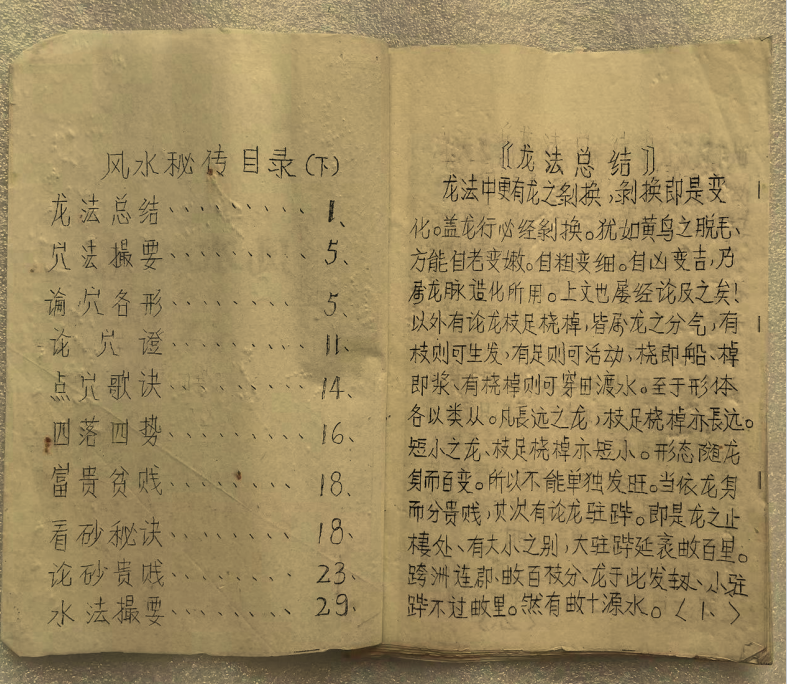 风水秘传目录(下)
龙法总结········1、
穴法撮要········5、
谕穴各形········5、
论穴證········11、
点穴歌诀········14、
四落四势········16、
富贵贫贱········18、
看砂秘诀········18、
论砂贵贱········23、
水法撮要········29、
《龙法总结》
龙法中更有龙之剝换,剝换即是变
化。盖龙行必经剝换。犹如黄鸟之脱毛、
方能自老变嫩。自粗变细。自凶变吉,乃
属龙脉造化所用。上文也屡经论及之矣!
以外有论龙枝足桡棹,皆属龙之分气,有
枝则可生发,有足则可活动,桡即船、棹
即桨、有桡棹则可穿田渡水。至于形体
各以类从。凡長远之龙,枝足桡棹亦長远。
短小之龙、枝足桡棹亦短小。形态随龙
身而百变。所以不能单独发旺。当依龙身
而分贵贱,其次有论龙驻跸。即是龙之止
棲处、有大小之别,大驻跸延袤数百里。
跨洲连郡、数百枝分、龙于此发 、小驻
跸不过数里。然有数十源水。〈1、〉